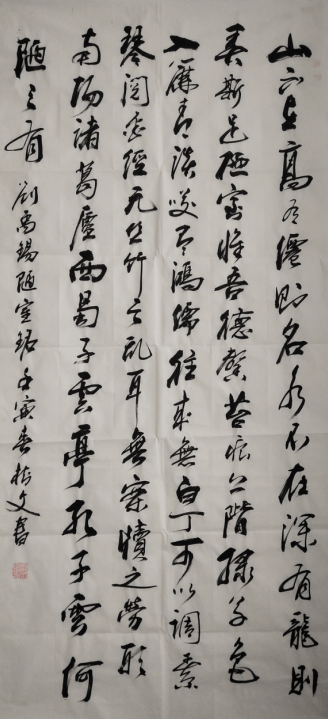 山不在高有僊則名水不在深有龍則
灵斯是陋室惟吾德馨苔痕上階緑草色
入簾青談笑有鴻儒往來無白丁可以調素
琴閲金經无丝竹之乱耳無案牘之勞形
南陽諸葛廬西蜀子雲亭孔子雲何
陋之有
劉禹錫陋室銘壬寅春文書